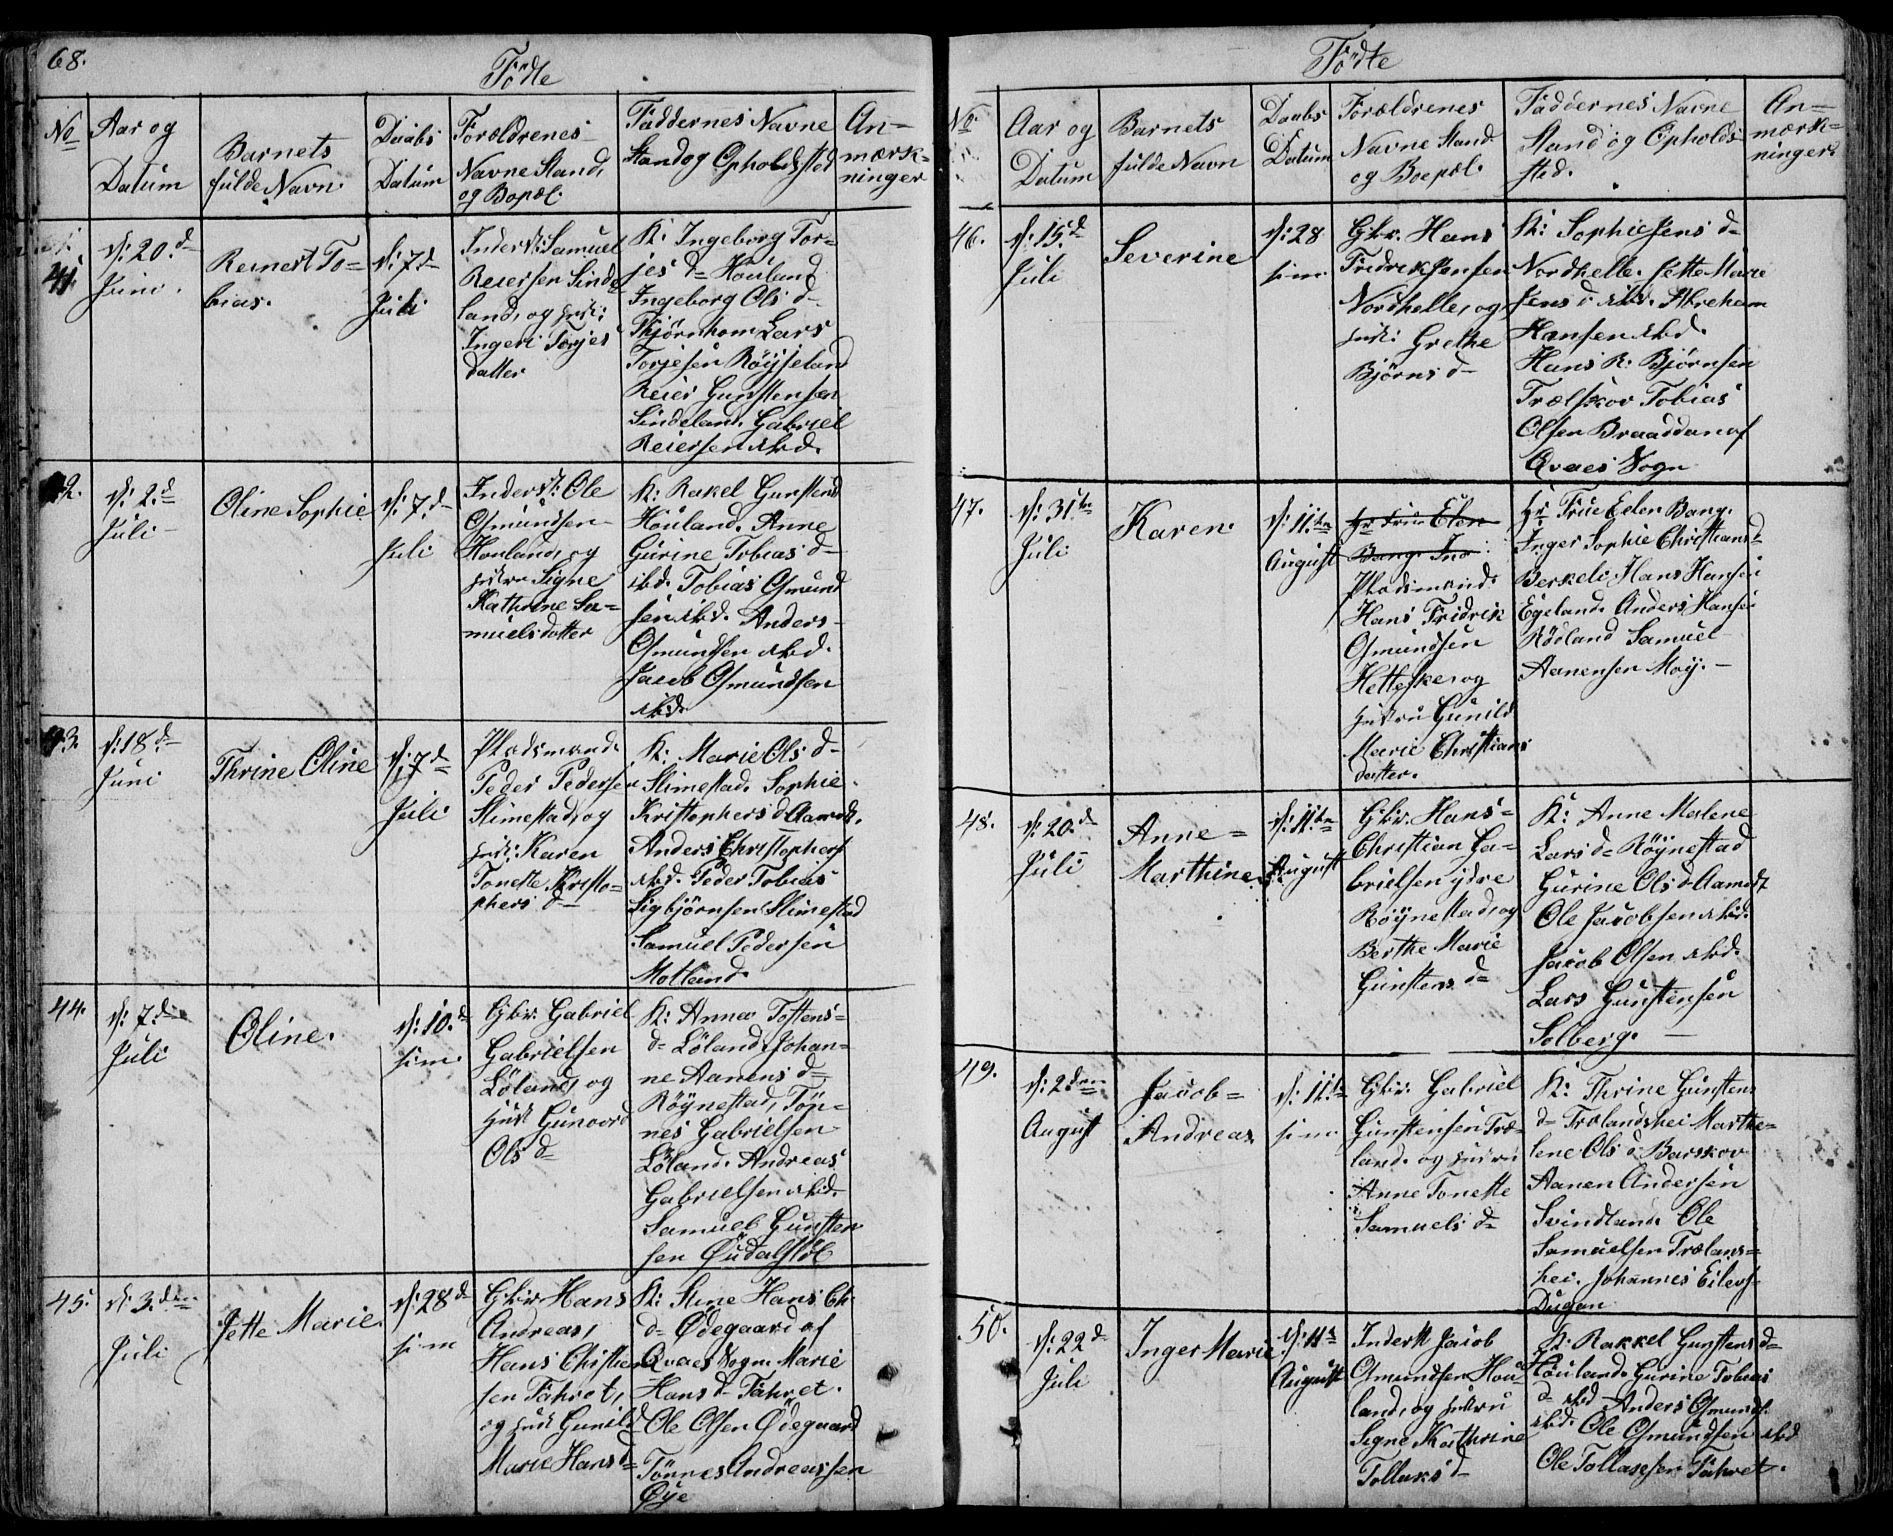 68.
Födte
No
Aar og
Datum
Barnets
fulde Navn.
Daabs
Datum
Forældrenes
Navne Stand,
og Bopæl.
Faddernes Navne
Stand og Opholdsted
An-
mærk-
ninger
41.
d: 20.d
Juni.
Reinert To-
bias.
d: 7d
Juli
Inderst: Samuel
Reiersen Sinde
land, og hust:
Ingeri Torjes
datter
K: Ingeborg Tor-
jes d= Houland
Ingeborg Ols d-
Thjørnhom Lars
Torjesen Röÿseland
Reier Gunstensen
Sindeland. Gabriel
Reiersen ibd.
42.
d: 2.d
Juli
Oline Sophie
d: 7.d
Juli
Inderst: Ole
Osmundsen
Houland, og
hustru Signe
Kathrine Sa-
muelsdatter
K: Rakel Gunstend
Houland. Anne
Gurine Tobias d-
ibd. Tobias Osmund
sen ibd. Anders
Osmundsen ibd.
Jacob Osmundsen
ibd.
43.
d: 18d
Juni
Thrine Oline
d: 7d
Juli
Pladsmand.
Peder Pedersen
Stimestad, og
hust: Karen
Tonette Kristo-
phers d-
K: Marie Ols d-
Stimestad. Sophie
Kristophers d Aamodt.
Anders Christophers
ibd. Peder Tobias
Sigbjörnsen Stimestad
Samuel Pedersen
Motland.
44.
d: 7.de
Juli
Oline.
d: 10.d
s: m.
Gbr. Gabriel
Gabrielsen
Löland, og
hust Gunvord
Ols d-
K: Anne Tostens-
d- Löland, Johan-
ne Aanens d-
Röÿnestad, Tön-
nes Gabrielsen
Löland. Andreas
Gabrielsen ibid.
Samuel Gunsten
sen Øudalstöl
45.
d: 3.den
Juli
Jette Marie.
d: 28d
s: m
Gbr. Hans
Andreas,
Hans Christen
sen Fahret,
og hust Gunild
Marie Hans d-
K: Stine Hans Ch.
d- Ødegaard af
Qvaes Sogn. Marie
Hans d- Fahret.
Ole Olsen Ødegaard
Tönnes Andreassen
Øye
Födte
No
Aar og
Datum
Barnets
fulde Navn
Daabs
Datum
Forældrenes
Navne Stand
og Boepæl.
Faddernes Navne
Stand og Opholds
sted.
An-
mærk-
ninger.
46.
d: 15.d
Juli
Severine
d: 28
s: m
Gbr. Hans
Fredrik Jansen
Nordhelle, og
hust: Grethe
Bjørns d-
K: Sophie Jens d-
Nordhelle. Jette Marie
Jens d. ibd. Abreham
Hansen ibd.
Hans R: Bjørnsen
Trælskov Tobias
Olsen Braaddan af
Qvaes Sogn
47.
d: 31te
Juli
Karen.
d: 11.te
August
Hr Frue Elen
Bang. Ing
Pladsmand.
Hans Fridrik
Osmundsen
Hetteskei og
hustru Gunild
Marie Christians
datter.
Hr Frue Eelen Bang.
Inger Sophie Christians d
Berkeli, Hans Hansen
Egeland. Anders Hansen
Rödland Samuel
Aanensen Moÿ. -
48.
d: 20.d
Juli
Anne-
Marthine.
d: 11.te
August
Gbr. Hans-
Christian Ga-
brielsen ÿdre
Röÿnestad, og
Berthe Marie
Gunstens d-
K: Anne Malene
Lars d- Röÿnestad
Gurine Ols d. Aamodt
Ole Jacobsen ibd.
Jacob Olsen ibd.
Lars Gunstensen
Solberg. -
49.
d: 2den
August
Jacob-
Andreas
d: 11.te
s: m
Gbr. Gabriel
Gunstensen Træ-
land. og hustru
Anne Tonette
Samuels d-
K: Thrine Gunstens
d- Trælandshei Marthe-
lene Ols d. Barskov
Aanen Andersen
Svindland. Ole
Samuelsen Trælans-
hei. Johannes Eilers-
Dugan
50.
d: 22d
Juli
Inger Marie
d: 11te
August
Inderst Jacob
Osmundsen Hou
land, og hustru
Signe Kathrine
Tollaks d-
K: Rakkel Gunstens d-
Houland. Gurine Tobias
d- ibd Anders Osmunds.
ibd. Ole Osmundsen ibd
Ole Tollaksen Fahret.